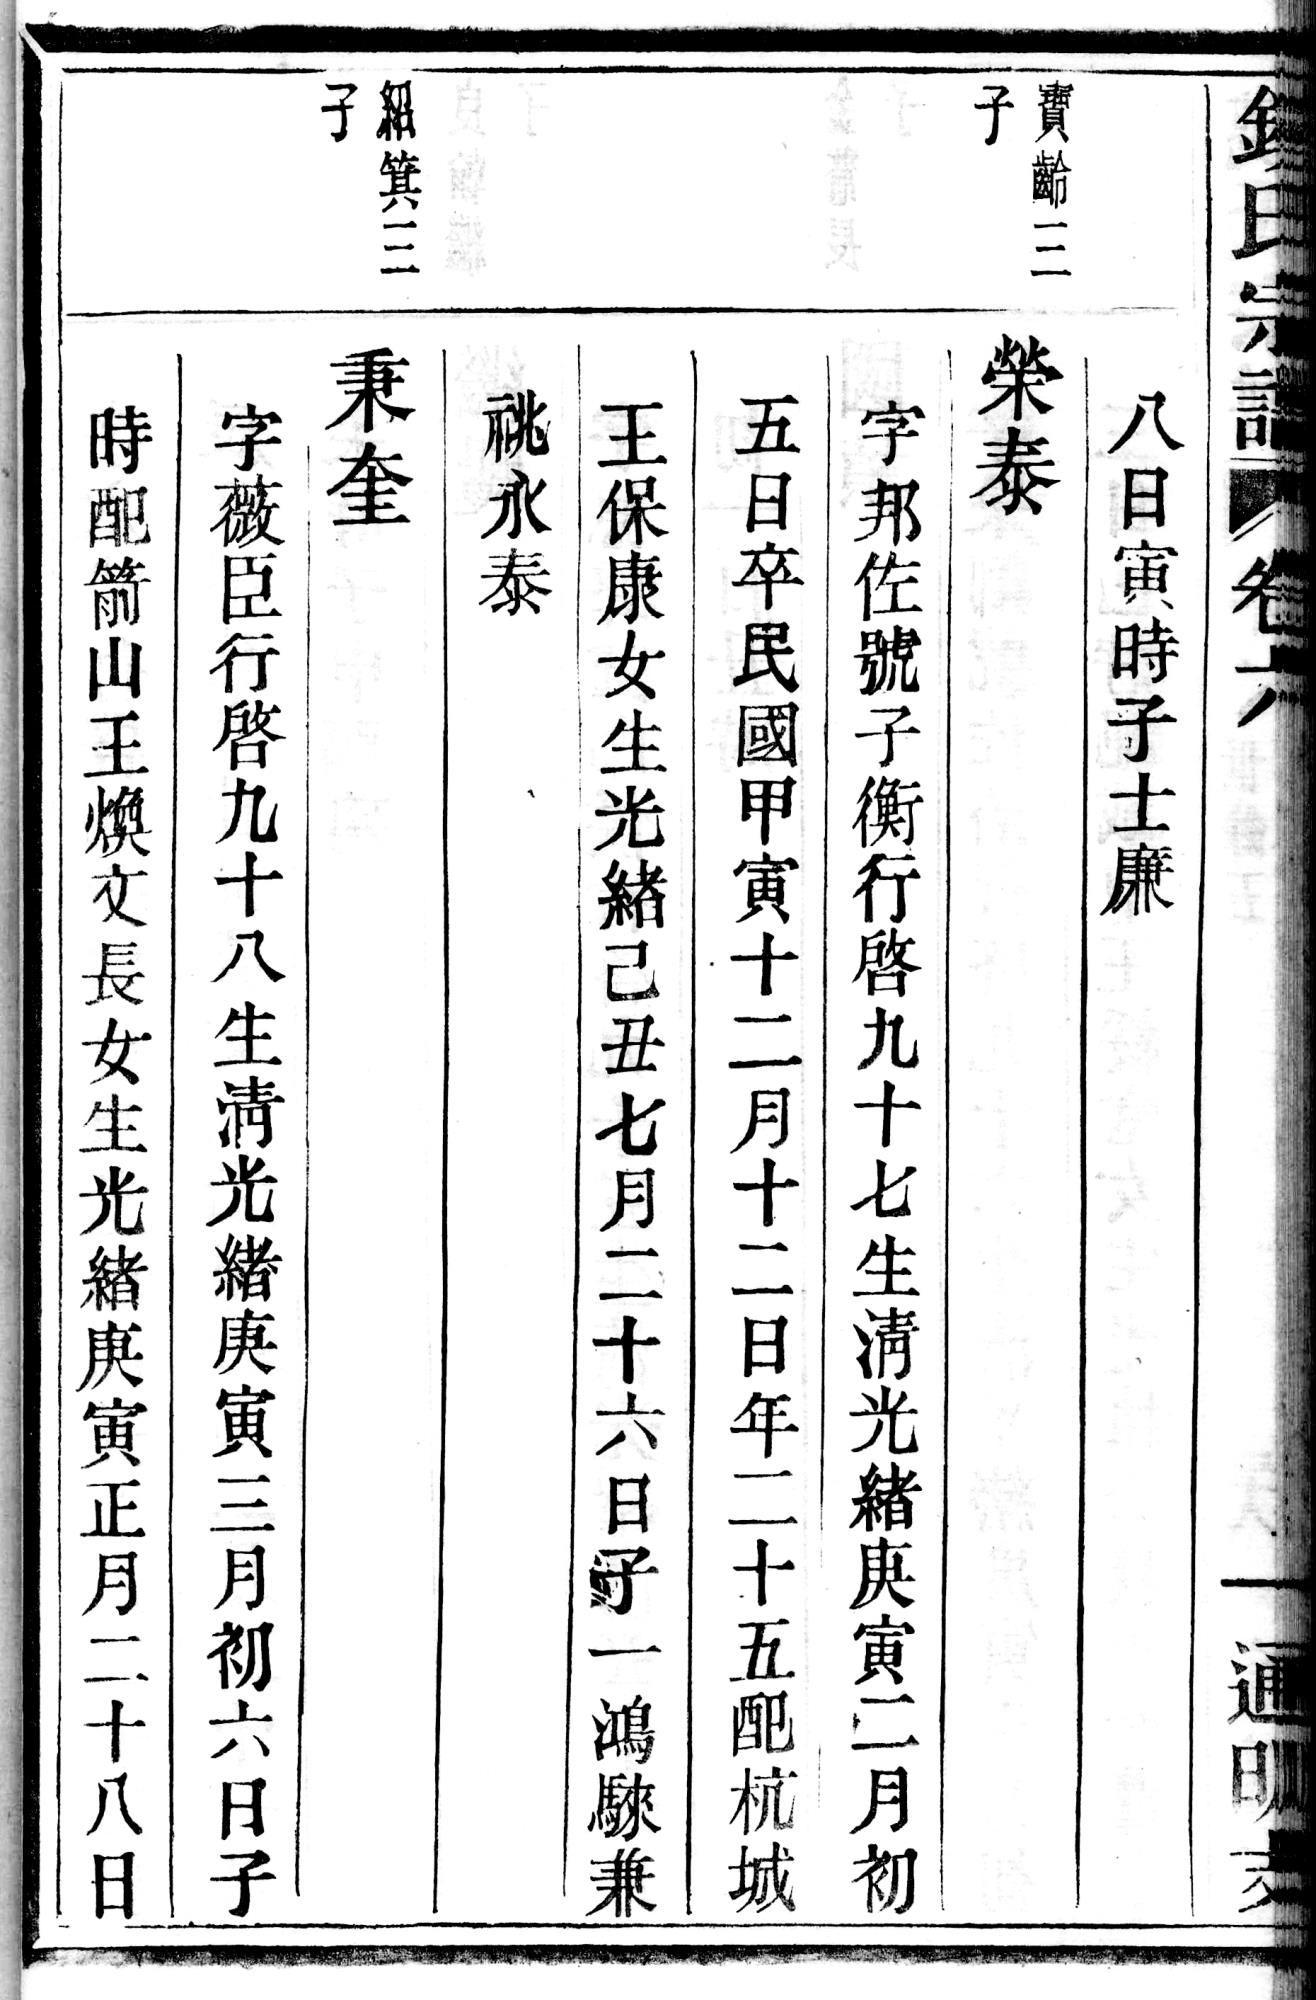 氏宗譜 卷六 通明支
八日寅時子士廉
寶齡三
子
榮泰
字邦佐號子衡行啓九十七生淸光緒庚寅二月初
五日卒民國甲寅十二月十二日年二十五配杭城
王保康女生光緒己丑七月二十六日子一鴻騋兼
祧永泰
紹箕三
子
秉奎
字薇臣行啓九十八生淸光緒庚寅三月初六日子
時配箭山王煥文長女生光緒庚寅正月二十八日